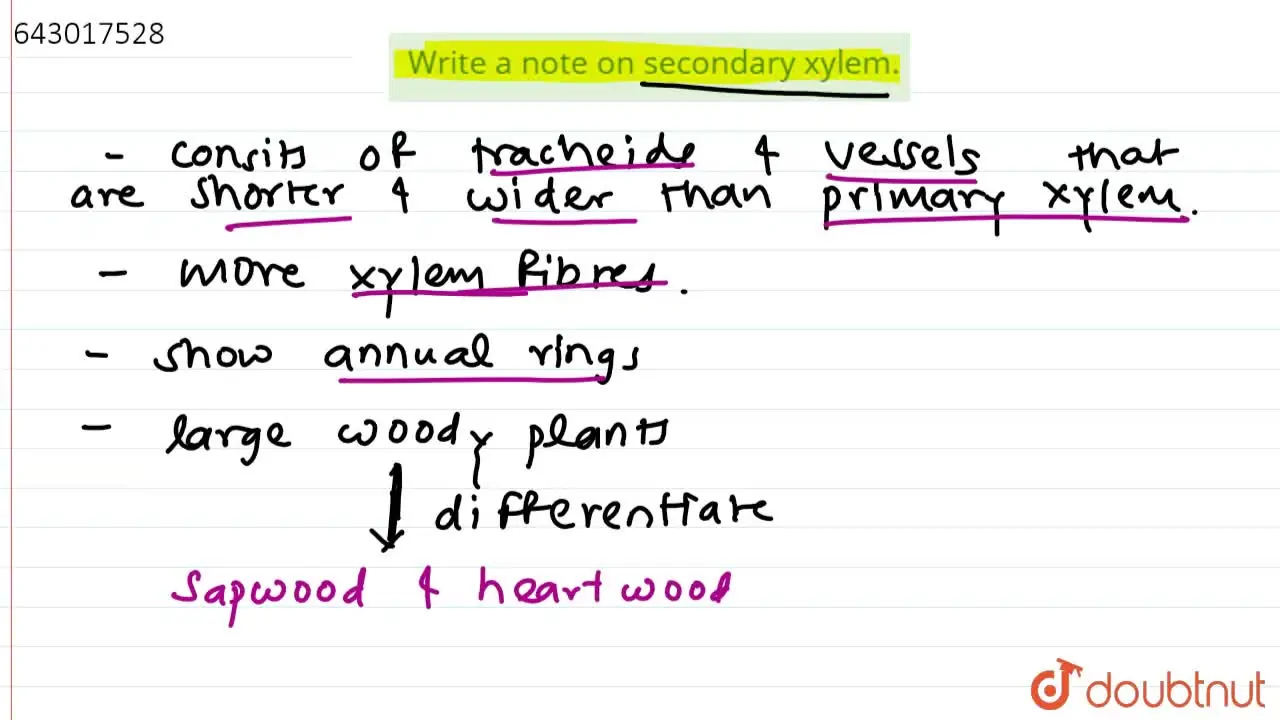 643017528
Write a note on secondary xylem.
- consits of tracheids & vessels that
are shorter & wider than primary xylem.
- more xylem fibres.
- show annual rings
- large woody plants
↓ differentiate
sapwood & heartwood
doubtnut